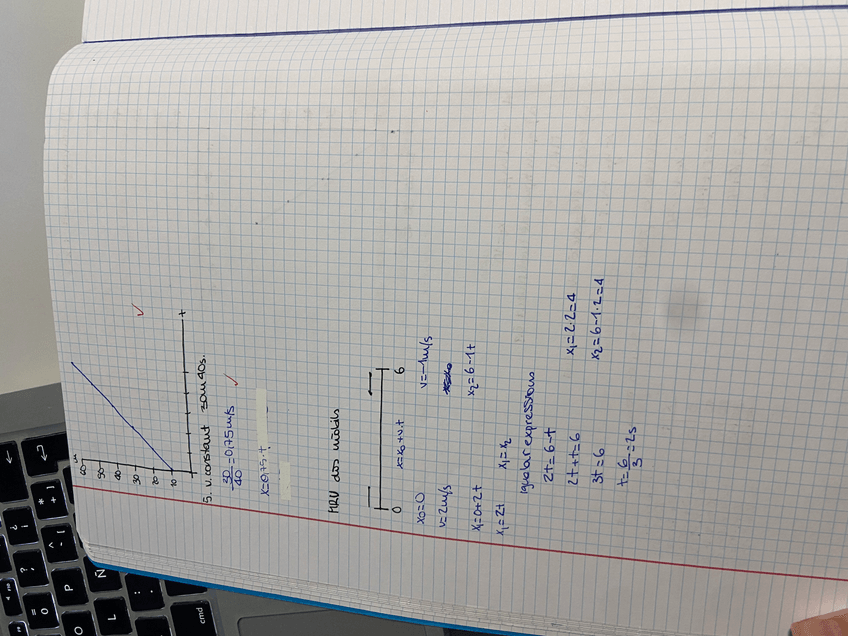 x
60
50
40
30
20
10
t
5. v. constant 30m 40s.
30/40 = 0,75 m/s
x=0,75·t
MRU dos mòbils
0 6
x=x₀+v·t
x₀=0
v=2m/s v=-1m/s
x₁=0+2t x₂=6-1t
x₁=2t x₁=x₂
igualar expressions
2t=6-t
2t+t=6 x₁=2·2=4
3t=6 x₂=6-1·2=4
t=6/3=2s
P
O
L
Ñ
cmd